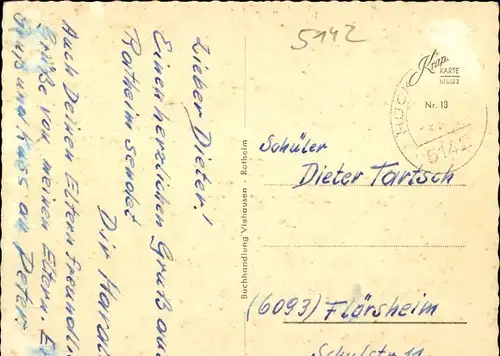 5142
Lieber Dieter!
Einen herzlichen Gruß aus
Ratheim sendet
Dir Harald
Auch Deinen Eltern freundl.
Grüße von meinen Eltern.
Gruß und Kuss an Peter
Buchhandlung Viehausen - Ratheim
Krap
KARTE
NEUSS 2
Nr. 13
HÜCK
5142
Schüler
Dieter Tartsch
(6093) Flörsheim
Schulstr. 11